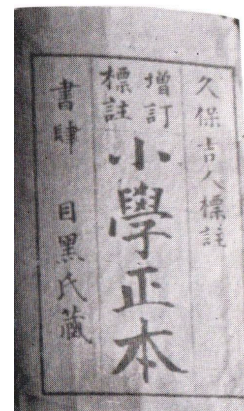 久保吉人標註
增訂
標註
小學正本
書肆 目黑氏藏